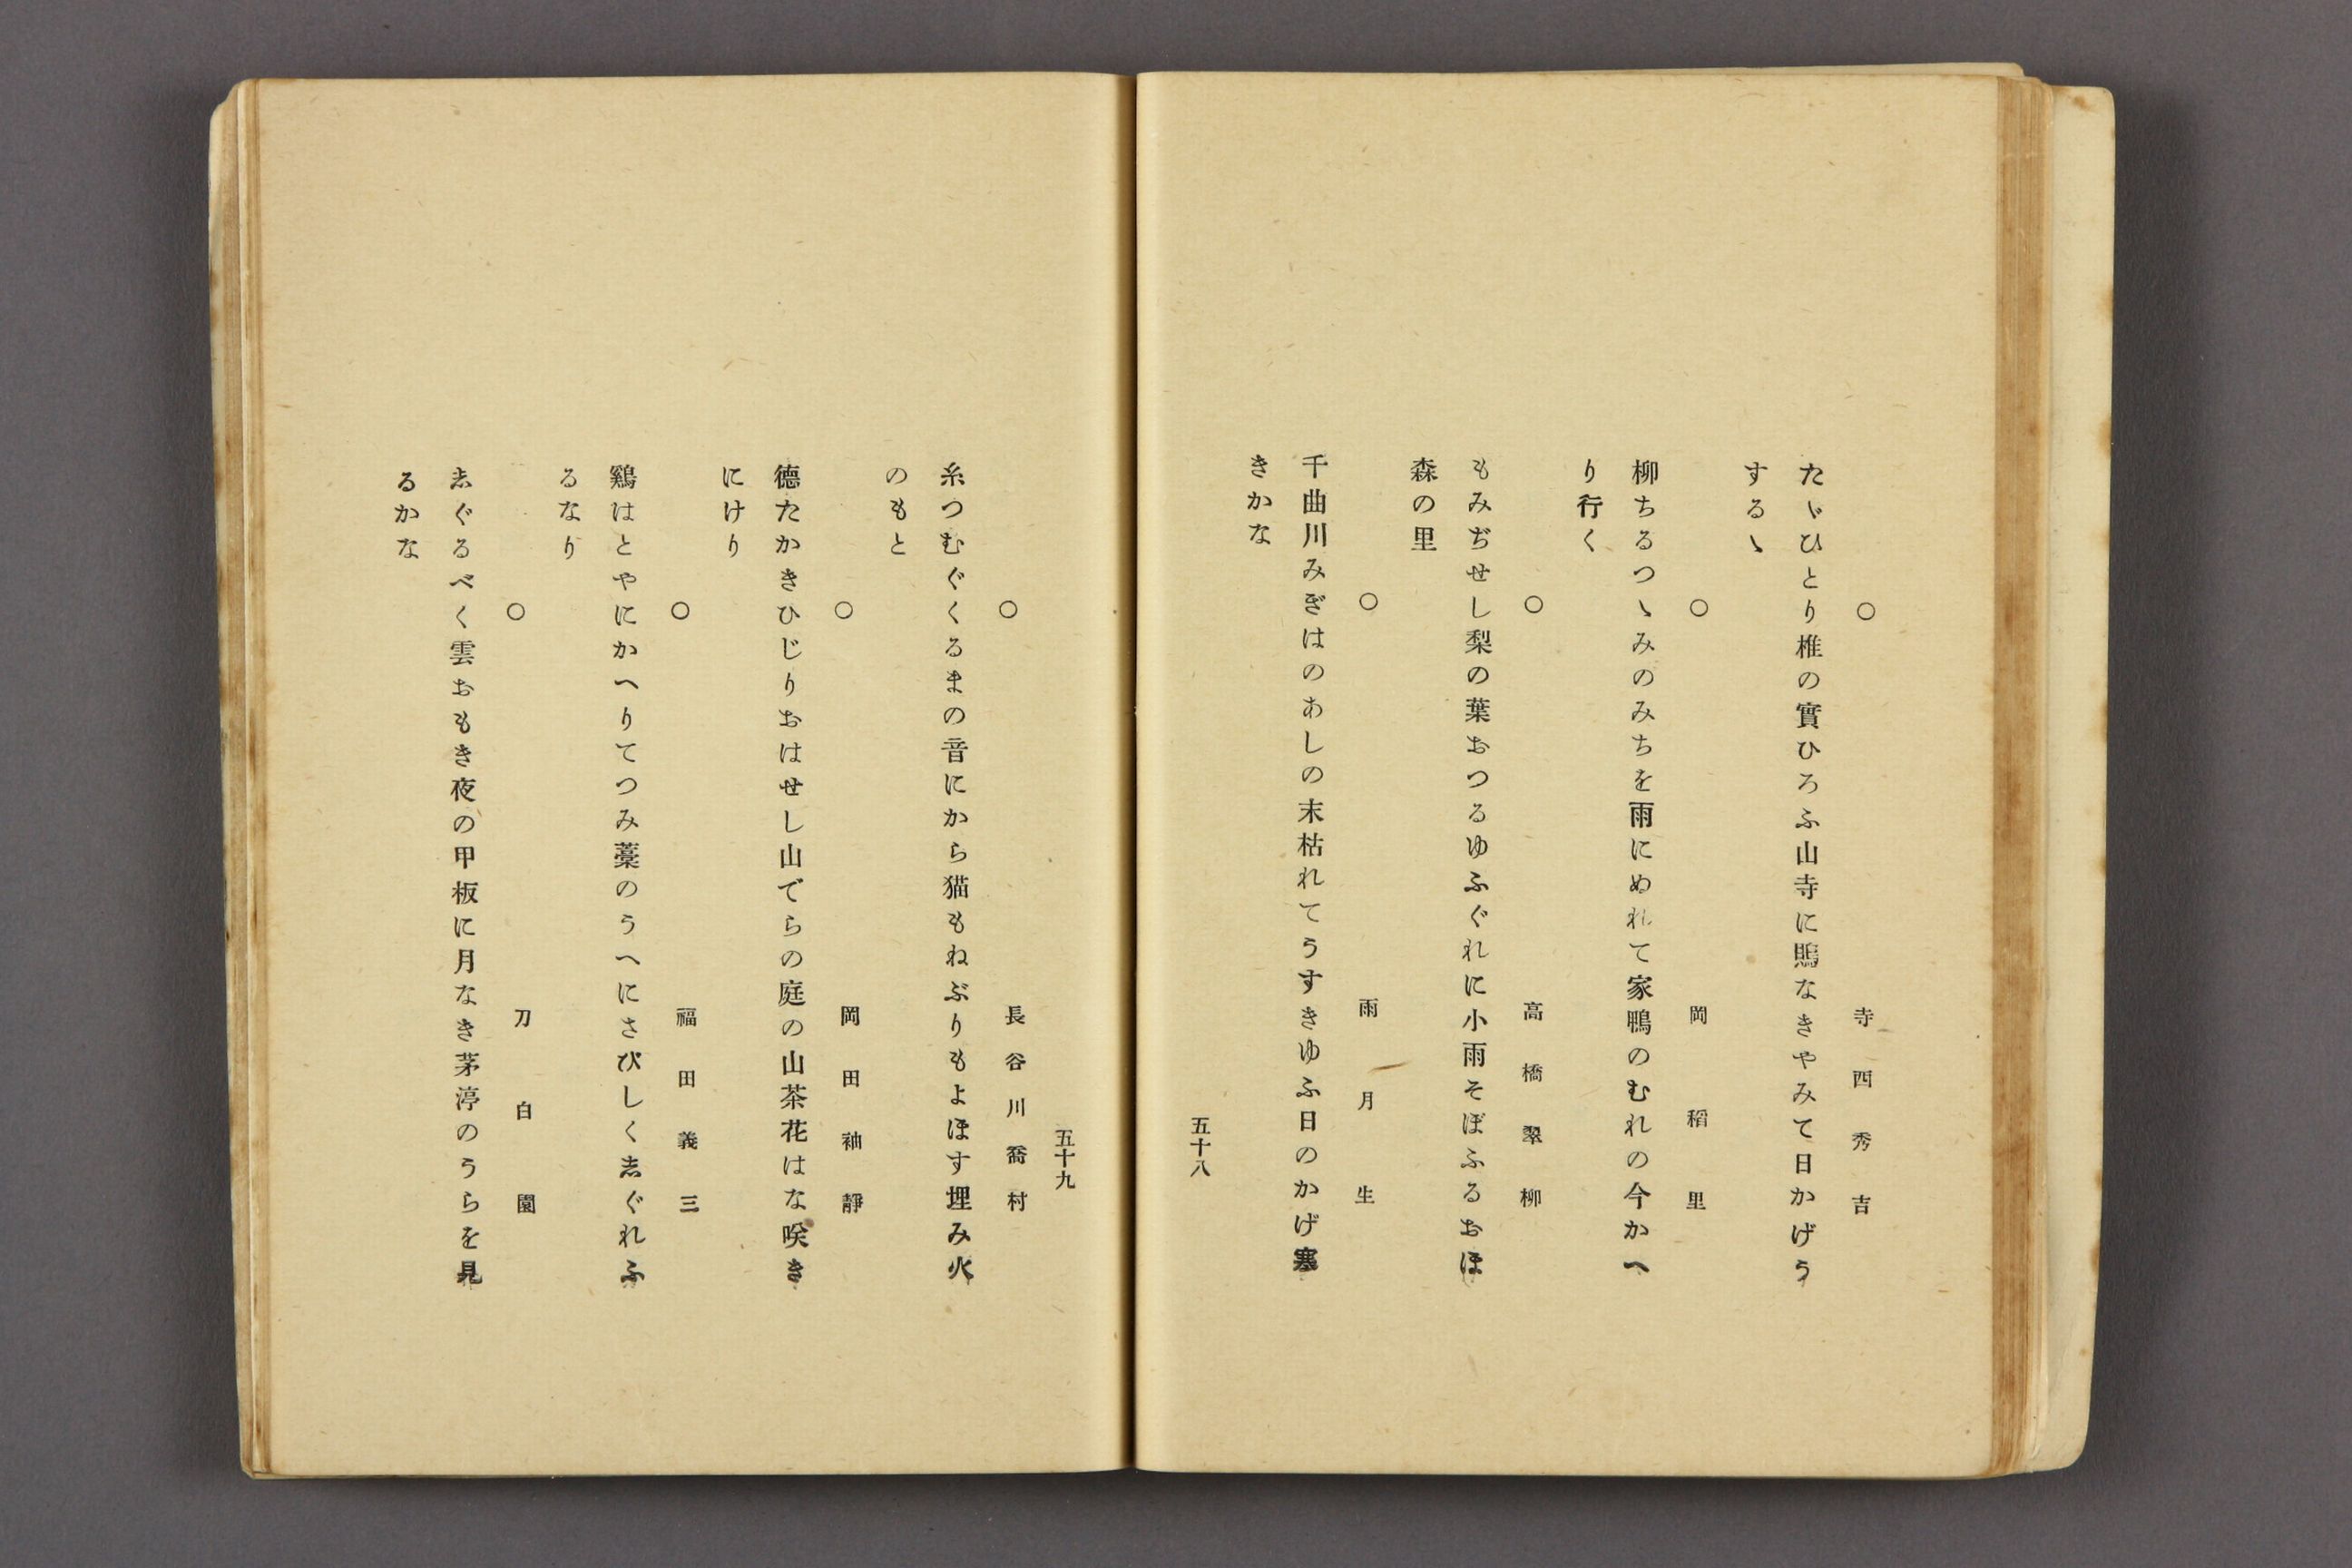 ○ 寺西秀吉
たゞひとり椎の實ひろふ山寺に鵙なきやみて日かげう
するゝ
○ 岡稻里
柳ちるつゝみのみちを雨にぬれて家鴨のむれの今かへ
り行く
○ 高橋翠柳
もみぢせし梨の葉おつるゆふぐれに小雨そぼふるおほ
森の里
○ 雨月生
千曲川みぎはのあしの末枯れてうすきゆふ日のかげ寒
きかな
五十八
五十九
○ 長谷川喬村
糸つむぐくるまの音にから猫もねぶりもよほす埋み火
のもと
○ 岡田袖靜
德たかきひじりおはせし山でらの庭の山茶花はな咲き
にけり
○ 福田義三
鷄はとやにかへりてつみ藁のうへにさびしく志ぐれふ
るなり
○ 刀白園
志ぐるべく雲おもき夜の甲板に月なき茅渟のうらを見
るかな